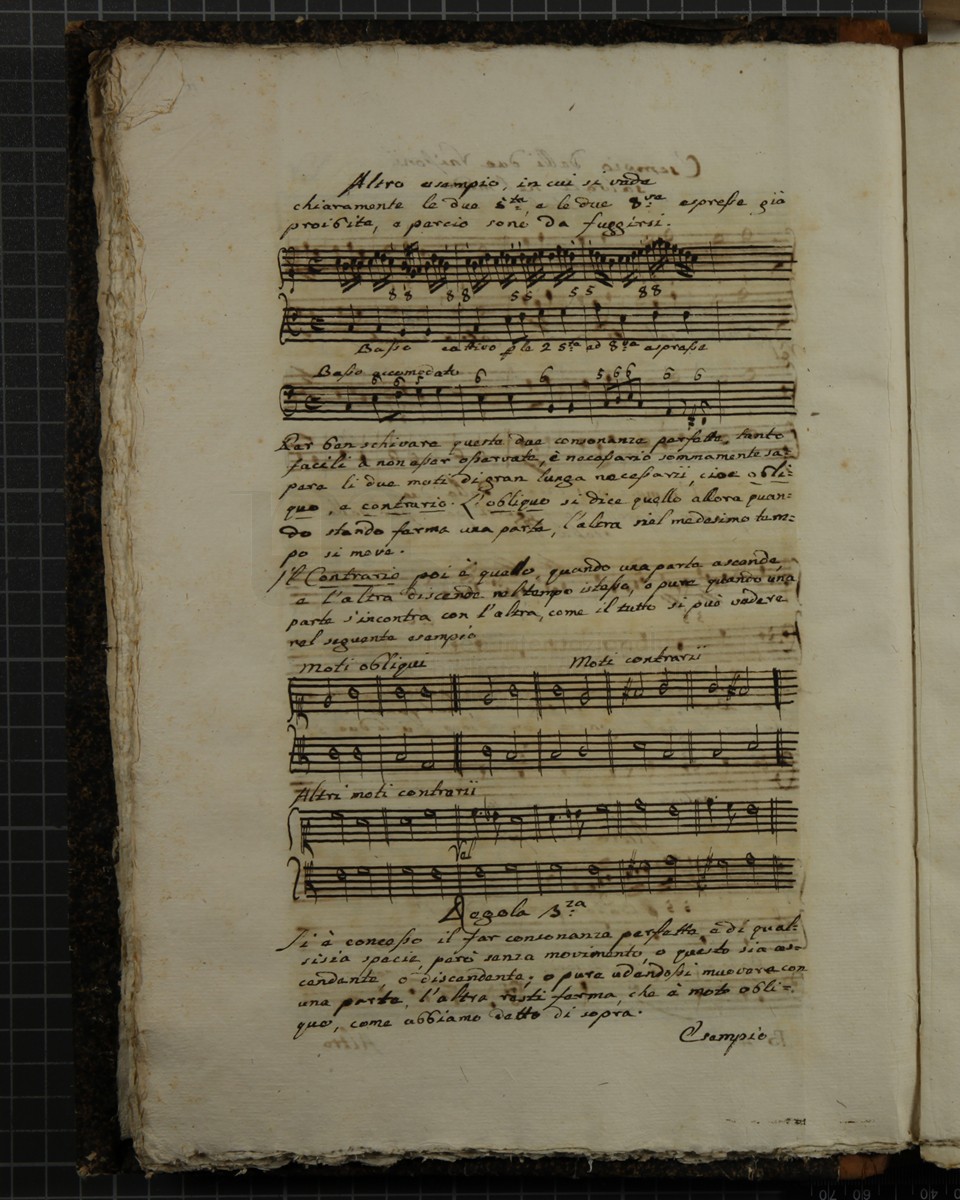 Altro esempio, in cui si vede
chiaramente le due 5.te, e le due 8.ve espresse già
proibite, e perciò sono da fuggirsi.
8 8 8 8 5 5 5 5 8 8
Basso cattivo p le 2 5.te ed 8.ve espresse
Basso accomodato
6 6 5 6 6 5 6 6 6 6
Per ben schivare queste due consonanze perfette, tanto
facili à non esser osservate, è necessario sommamente sa=
pere li due moti di gran lunga necessarii, cioe obli=
quo, e contrario. L'obliquo si dice quello allora quan=
do stando ferma una parte, l'altra nel medesimo tem=
po si move.
Il Contrario poi è quello, quando una parte ascende,
e l'altra discende nel tempo istesso, o pure quando una
parte s'incontra con l'altra, come il tutto si può vedere
nel seguente esempio
Moti obliqui Moti contrarii
Altri moti contrarii
Regola 3.za
Si è concesso il far consonanze perfette, e di qual=
sisia specie, però senza movimento, o questo sia as=
cendente, o discendente; o pure udendosi muovere con
una parte, l'altra resti ferma, che è moto obli=
quo, come abbiamo detto di sopra.
Esempio